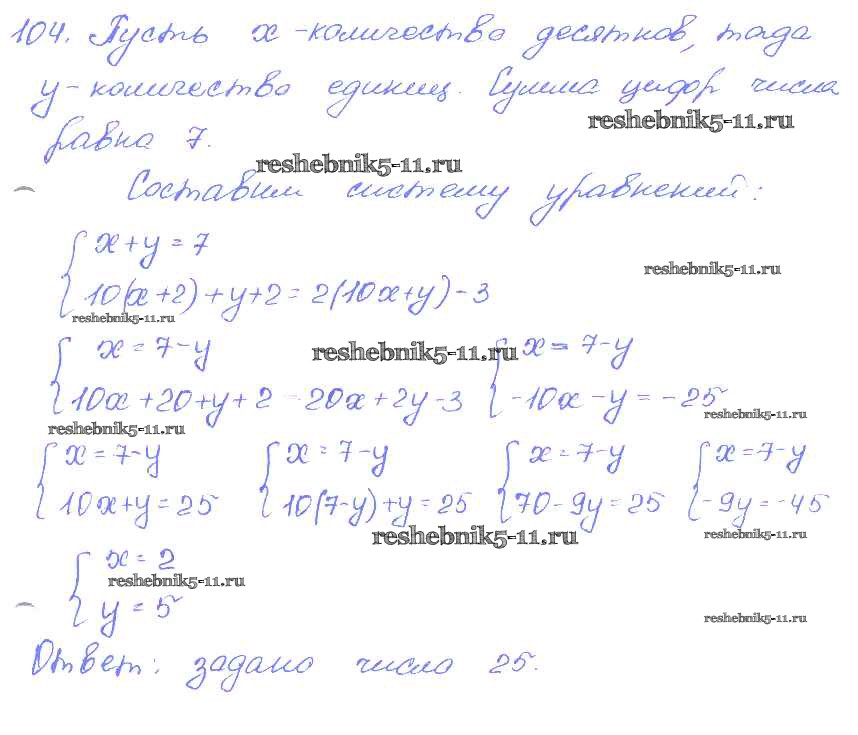 104. Пусть x - количество десятков, тогда
y - количество единиц. Сумма цифр числа
reshebnik5-11.ru
равна 7.
reshebnik5-11.ru
Составим систему уравнений:
x + y = 7
reshebnik5-11.ru
10(x+2) + y + 2 = 2(10x+y) - 3
reshebnik5-11.ru
x = 7 - y reshebnik5-11.ru x = 7 - y
10x + 20 + y + 2 = 20x + 2y - 3 -10x - y = -25
reshebnik5-11.ru reshebnik5-11.ru
x = 7 - y x = 7 - y x = 7 - y x = 7 - y
10x + y = 25 10(7-y) + y = 25 70 - 9y = 25 -9y = -45
reshebnik5-11.ru reshebnik5-11.ru
x = 2
reshebnik5-11.ru
y = 5
reshebnik5-11.ru
Ответ: задано число 25.